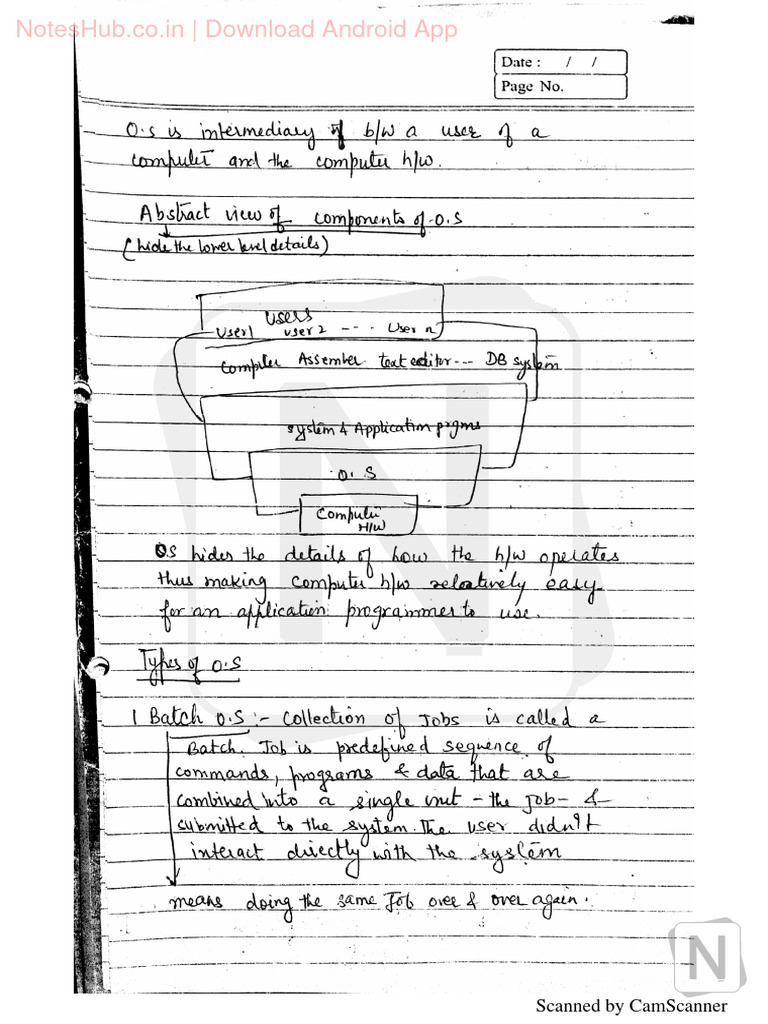 NotesHub.co.in | Download Android App
Date : / /
Page No.
O.S is intermediary b/w a user of a
computer and the computer h/w.
Abstract view of components of O.S
(hide the lower level details)
Users
User1 user2 --- User n
Compiler Assember text editor --- DB system
system & Application prgms
O.S
Computer
H/W
OS hides the details of how the h/w operates
thus making computer h/w relatively easy
for an application programmer to use.
Types of O.S
1 Batch O.S :- Collection of Jobs is called a
Batch. Job is predefined sequence of
commands, programs & data that are
combined into a single unit - the Job - &
submitted to the system. The user didn't
interact directly with the system
means doing the same Job over & over again.
N
N
Scanned by CamScanner